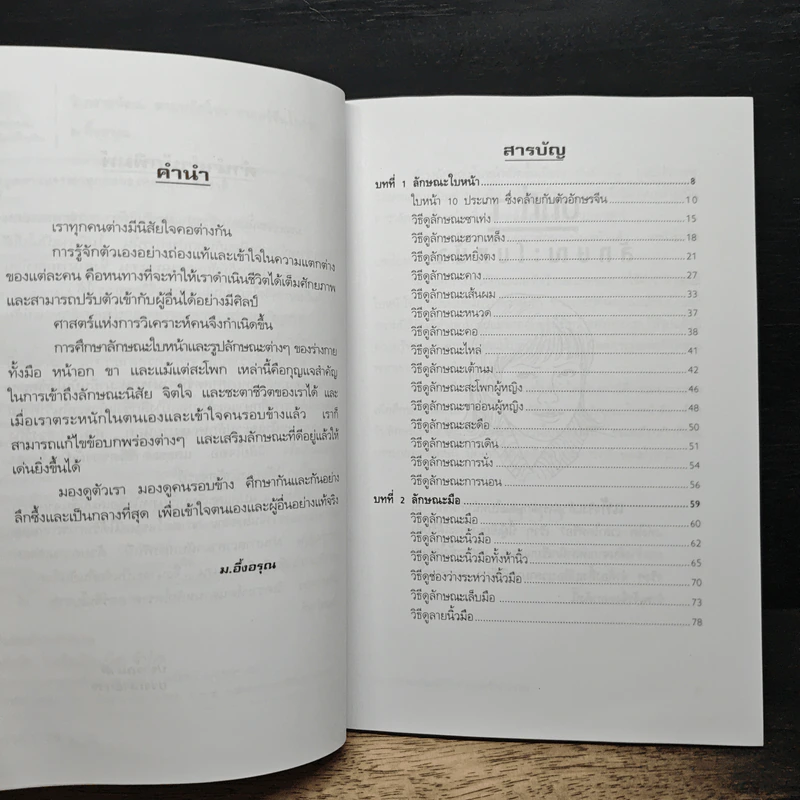 คำนำ
เราทุกคนต่างมีนิสัยใจคอต่างกัน
การรู้จักตัวเองอย่างถ่องแท้และเข้าใจในความแตกต่าง
ของแต่ละคน คือหนทางที่จะทำให้เราดำเนินชีวิตได้เต็มศักยภาพ
และสามารถปรับตัวเข้ากับผู้อื่นได้อย่างมีศิลป์
ศาสตร์แห่งการวิเคราะห์คนจึงกำเนิดขึ้น
การศึกษาลักษณะใบหน้าและรูปลักษณะต่างๆ ของร่างกาย
ทั้งมือ หน้าอก ขา และแม้แต่สะโพก เหล่านี้คือกุญแจสำคัญ
ในการเข้าถึงลักษณะนิสัย จิตใจ และชะตาชีวิตของเราได้ และ
เมื่อเราตระหนักในตนเองและเข้าใจคนรอบข้างแล้ว เราก็
สามารถแก้ไขข้อบกพร่องต่างๆ และเสริมลักษณะที่ดีอยู่แล้วให้
เด่นยิ่งขึ้นได้
มองดูตัวเรา มองดูคนรอบข้าง ศึกษากันและกันอย่าง
ลึกซึ้งและเป็นกลางที่สุด เพื่อเข้าใจตนเองและผู้อื่นอย่างแท้จริง
ม.อึ้งอรุณ
สารบัญ
บทที่ 1 ลักษณะใบหน้า 8
ใบหน้า 10 ประเภท ซึ่งคล้ายกับตัวอักษรจีน 10
วิธีดูลักษณะซาเท่ง 15
วิธีดูลักษณะฮวกเหล็ง 18
วิธีดูลักษณะหยิ่งตง 21
วิธีดูลักษณะคาง 27
วิธีดูลักษณะเส้นผม 33
วิธีดูลักษณะหนวด 37
วิธีดูลักษณะคอ 38
วิธีดูลักษณะไหล่ 41
วิธีดูลักษณะเต้านม 42
วิธีดูลักษณะสะโพกผู้หญิง 46
วิธีดูลักษณะขาอ่อนผู้หญิง 48
วิธีดูลักษณะสะดือ 50
วิธีดูลักษณะการเดิน 51
วิธีดูลักษณะการนั่ง 54
วิธีดูลักษณะการนอน 56
บทที่ 2 ลักษณะมือ 59
วิธีดูลักษณะมือ 60
วิธีดูลักษณะนิ้วมือ 62
วิธีดูลักษณะนิ้วมือทั้งห้านิ้ว 65
วิธีดูช่องว่างระหว่างนิ้วมือ 70
วิธีดูลักษณะเล็บมือ 73
วิธีดูลายนิ้วมือ 78